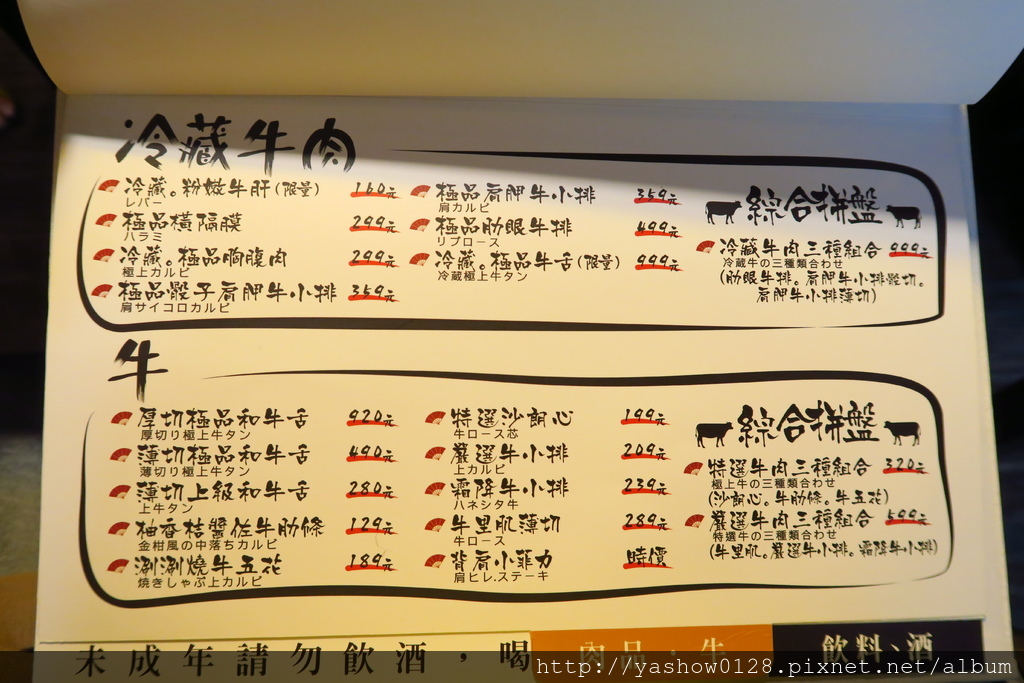 冷藏牛肉
冷藏。粉嫩牛肝(限量) 160元
レバー
極品橫隔膜 299元
ハラミ
冷藏。極品胸腹肉 299元
極上カルビ
極品骰子肩胛牛小排 359元
肩サイコロカルビ
極品肩胛牛小排 359元
肩カルビ
極品肋眼牛排 499元
リブロース
冷藏。極品牛舌(限量) 999元
冷蔵極上牛タン
綜合拼盤
冷藏牛肉三種組合 999元
冷蔵牛の三種類合わせ
(肋眼牛排。肩胛牛小排骰切。
肩胛牛小排薄切)
牛
厚切極品和牛舌 920元
厚切り極上牛タン
薄切極品和牛舌 490元
薄切り極上牛タン
薄切上級和牛舌 280元
上牛タン
柚香桔醬佐牛肋條 129元
金柑風の中落ちカルビ
涮涮燒牛五花 189元
焼きしゃぶ上カルビ
特選沙朗心 199元
牛ロース芯
嚴選牛小排 209元
上カルビ
霜降牛小排 239元
ハネシタ牛
牛里肌薄切 289元
牛ロース
背肩小菲力 時價
肩ヒレ.ステーキ
綜合拼盤
特選牛肉三種組合 320元
極上牛の三種類合わせ
(沙朗心。牛肋條。牛五花)
嚴選牛肉三種組合 599元
特選牛の三種類合わせ
(牛里肌。嚴選牛小排。霜降牛小排)
未成年請勿飲酒，喝
肉品・牛
飲料、酒
http://yashow0128.pixnet.net/album